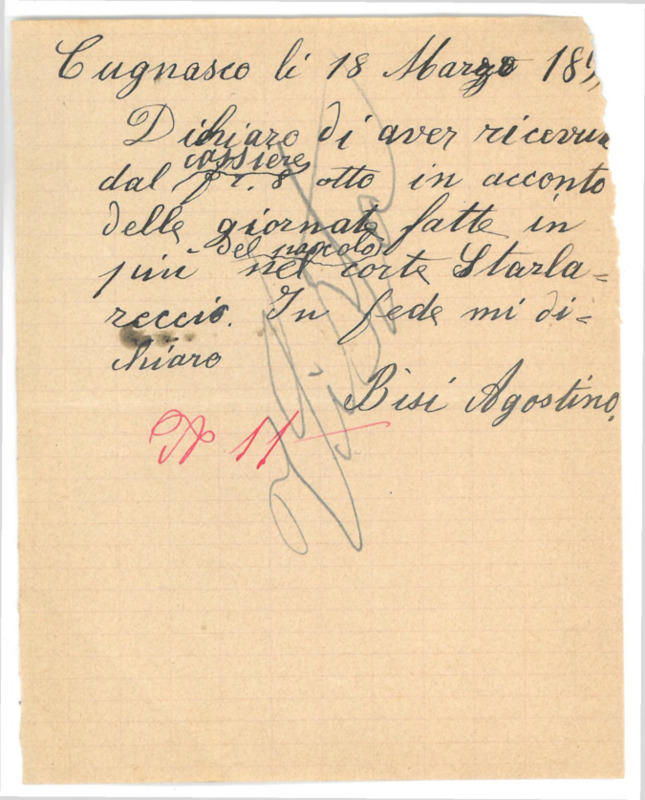 Cugnasco li 18 Marzo 189
Dichiaro di aver ricevu
cassiere
dal fr. 8 otto in acconto
delle giornate fatte in
del pascolo
più nel corte Starla=
reccio. In fede mi di=
chiaro
Bisi Agostino.
No 11